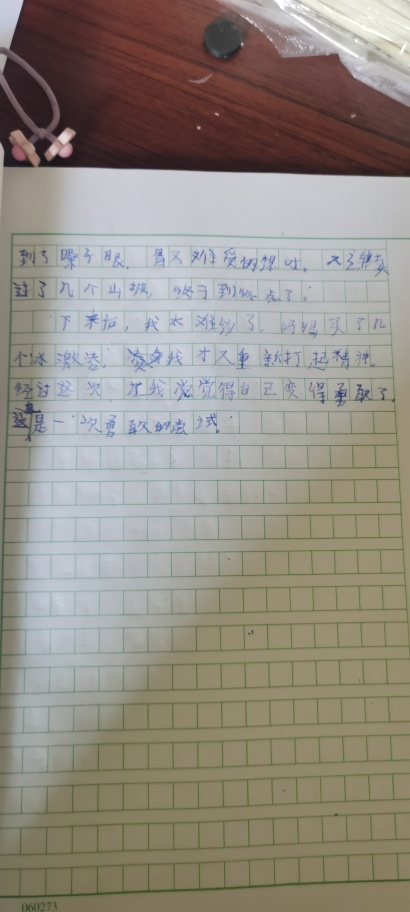 到了嗓子眼，胃又难受的想吐。又连续
过了几个山坡，终于到终点了。
下来后，我太难受了，妈妈买了几
个冰激凌，我才又重新打起精神。
经过这次，我觉得自己变得勇敢了。
这是一次勇敢的尝试。
060273